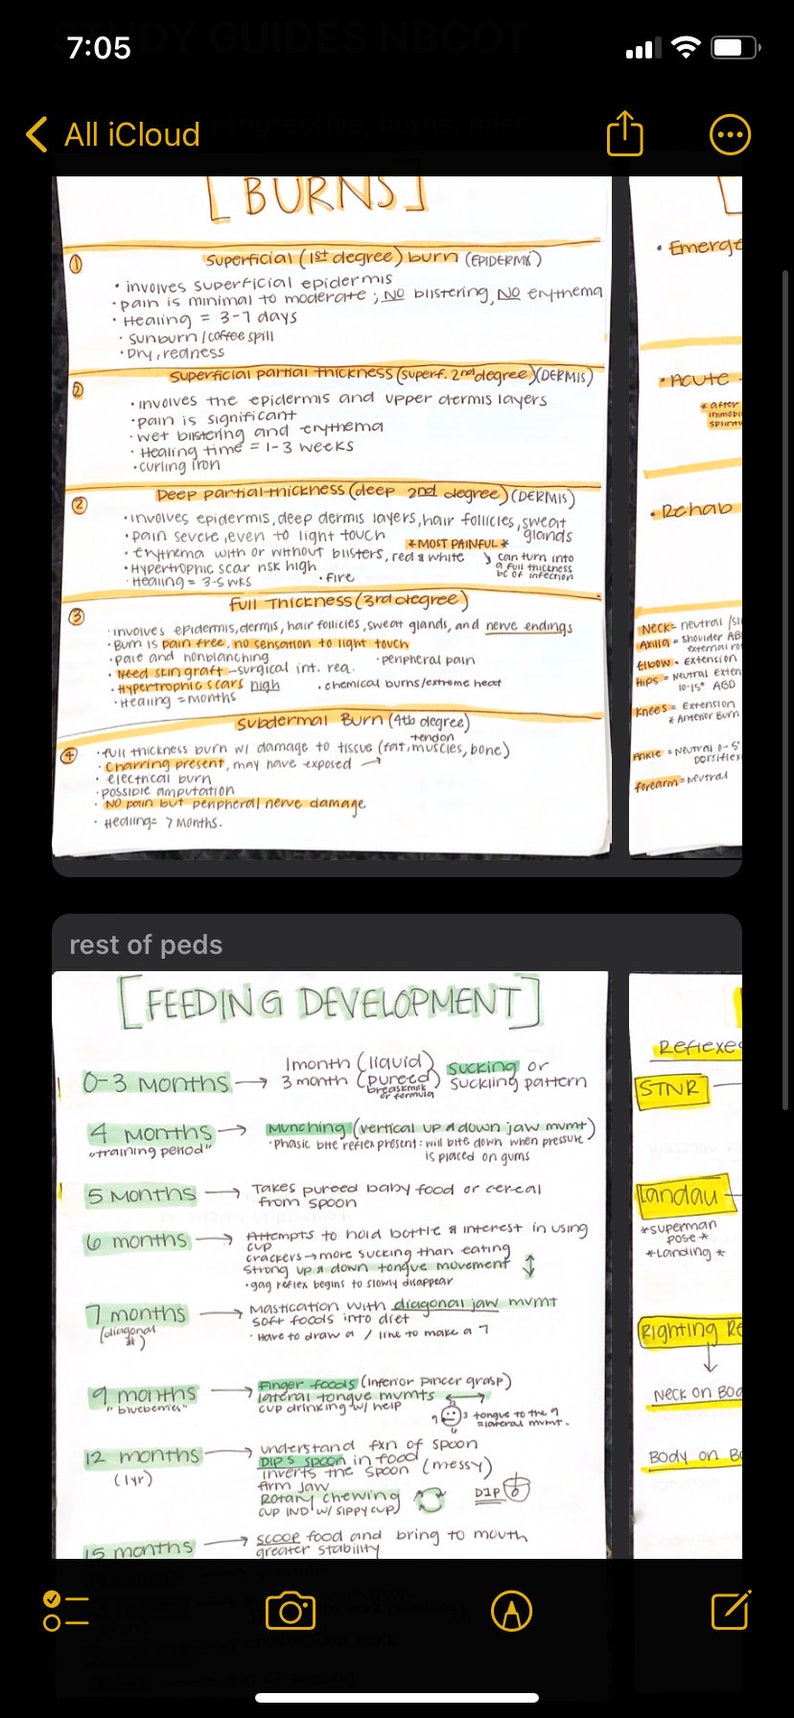 STUDY GUIDES NBCOT
7:05
All iCloud
[BURNS]
① Superficial (1st degree) burn (EPIDERMIS)
• involves superficial epidermis
• pain is minimal to moderate ; NO blistering, NO erythema
• Healing = 3-7 days
• sunburn / coffee spill
• Dry, redness
② Superficial partial thickness (superf. 2nd degree) (DERMIS)
• involves the epidermis and upper dermis layers
• pain is significant
• wet blistering and erythema
• Healing time = 1-3 weeks
• curling iron
② Deep partial thickness (deep 2nd degree) (DERMIS)
• involves epidermis, deep dermis layers, hair follicles, sweat glands
• pain severe, even to light touch *MOST PAINFUL*
• erythema with or without blisters, red & white
can turn into
a full thickness
bc of infection
• Hypertrophic scar risk high
• Healing = 3-5 wks • fire
③ Full Thickness (3rd degree)
• involves epidermis, dermis, hair follicles, sweat glands, and nerve endings
• Burn is pain free, no sensation to light touch
• pale and nonblanching • peripheral pain
• Need skin graft - surgical int. rea.
• Hypertrophic scars high • chemical burns/extreme heat
• Healing = months
Subdermal Burn (4th degree)
④ • full thickness burn w/ damage to tissue (fat, muscles, bone)
tendon
• Charring present, may have exposed →
• electrical burn
• possible amputation
• NO pain but peripheral nerve damage
• Healing = 7 months.
• Emerge
• Acute -
* after
immobi
splint
• Rehab
Neck = neutral /sl
Axilla = Shoulder AB
external ro
Elbow - Extension
Hips = Neutral exten
10-15° ABD
Knees = Extension
* Anterior Burn
Ankle = Neutral 0-5°
Dorsiflex
forearm = Neutral
rest of peds
[FEEDING DEVELOPMENT]
0-3 MONTHS → 1month (liquid) sucking or
3 month (pureed) suckling pattern
breastmilk
or formula
4 MONTHS → Munching (vertical up & down jaw mvmt)
"training period" • Phasic bite reflex present: will bite down when pressure
is placed on gums
5 MONTHS → Takes pureed baby food or cereal
from spoon
6 months → Attempts to hold bottle & interest in using
cup
crackers → more sucking than eating
Strong up & down tongue movement ↕
• gag reflex begins to slowly disappear
7 months → Mastication with diagonal jaw mvmt
(diagonal #) soft foods into diet
• Have to draw a / line to make a 7
9 months → Finger foods (inferior pincer grasp)
"blueberries" lateral tongue mvmts ↔
cup drinking w/ help
tongue to the 9
= lateral mvmt.
12 months → understand fxn of spoon
(1yr) Dip's spoon in food
inverts the spoon (messy)
firm jaw
Rotary chewing DIP
cup IND w/ sippy cup
15 months → scoop food and bring to mouth
greater stability
Reflexe
STNR
Landau
*superman
pose*
*Landing*
Righting Re
Neck on Bod
Body on B